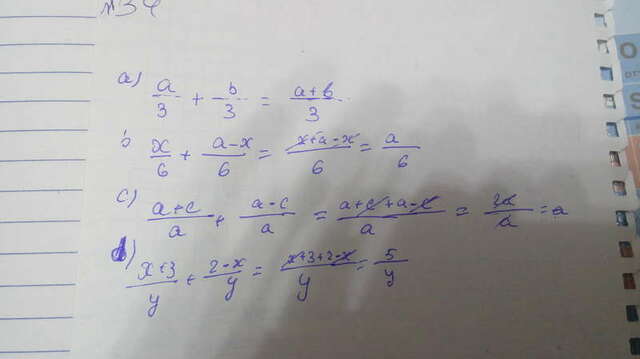 a) a/3 + b/3 = a+b/3
b) x/6 + a-x/6 = x+a-x/6 = a/6
c) a+c/a + a-c/a = a+c+a-c/a = 2a/a = a
d) x+3/y + 2-x/y = x+3+2-x/y = 5/y